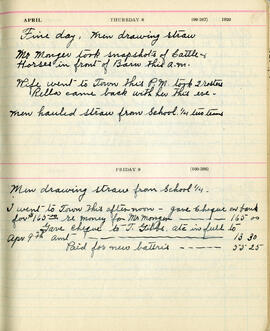 APRIL THURSDAY 8 (99-267) 1920
Fine day, Men drawing straw
Mr Monger took snapshots of Cattle &
Horses in front of Barn this a.m.
Wife went to Town this P.M. took 2 rosters
Rella came back with her this eve-
men hauled straw from School ¼
FRIDAY 9 (100-266)
Men drawing straw from School ¼.
I went to Town this afternoon - gave Cheque on bank
for $165.00 re money for Mr Monger 165 00
Gave Cheque to T. Gibbs. in full to
Apr 9th amt 13 30
Paid for new 55 25